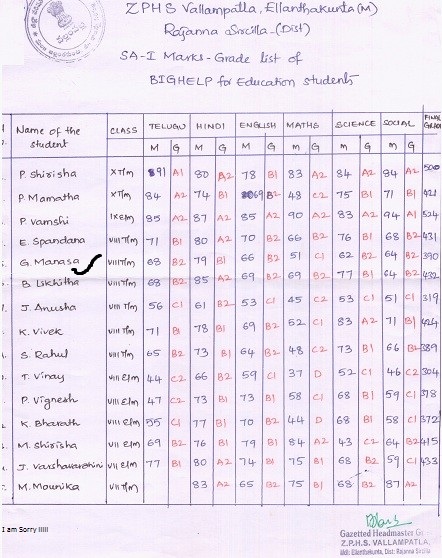 ZPHS Vallampatla, Ellanthakunta(M)
Rajanna Sircilla-(Dist)
SA-I Marks-Grade list of
BIGHELP for Education students
Name of the student CLASS TELUGU HINDI ENGLISH MATHS SCIENCE SOCIAL FINAL GRADE
M G M G M G M G M G M G
P. Shirisha X T/m 91 A1 80 A2 78 B1 83 A2 84 A2 84 A2 500
P. Mamatha X T/m 84 A2 74 B1 69 B2 48 C2 75 B1 71 B1 421
P. Vamshi IX E/m 85 A2 87 A2 85 A2 90 A2 83 A2 94 A1 524
E. Spandana VIII T/m 71 B1 80 A2 70 B2 66 B2 76 B1 68 B2 431
G. Manasa VIII T/m 68 B2 79 B1 66 B2 51 C1 62 B2 64 B2 390
B. Likhitha VIII T/m 68 B2 85 A2 69 B2 69 B2 77 B1 64 B2 432
J. Anusha VIII T/m 56 C1 61 B2 53 C1 45 C2 53 C1 51 C1 319
K. Vivek VIII T/m 71 B1 78 B1 69 B2 52 C1 83 A2 71 B1 424
S. Rahul VIII T/m 65 B2 73 B1 64 B2 48 C2 73 B1 66 B2 389
T. Vinay VIII E/m 44 C2 66 B2 59 C1 37 D 52 C1 46 C2 304
P. Vignesh VII E/m 47 C2 73 B1 73 B1 58 C1 68 B1 59 C1 378
K. Bharath VII E/m 55 C1 77 B1 70 B2 44 D 68 B1 58 C1 372
M. Shirisha VII E/m 69 B2 76 B1 79 B1 84 A2 43 C2 64 B2 415
J. Varshavarshini VII E/m 77 B1 80 A2 74 B1 75 B1 68 B2 59 C1 433
M. Mounika VII T/m 83 A2 65 B2 75 B1 68 B2 87 A2
I am Sorry !!!!!
Gazetted Headmaster
Z.P.H.S. VALLAMPATLA,
Mdl: Ellanthakunta, Dist: Rajanna Sircilla